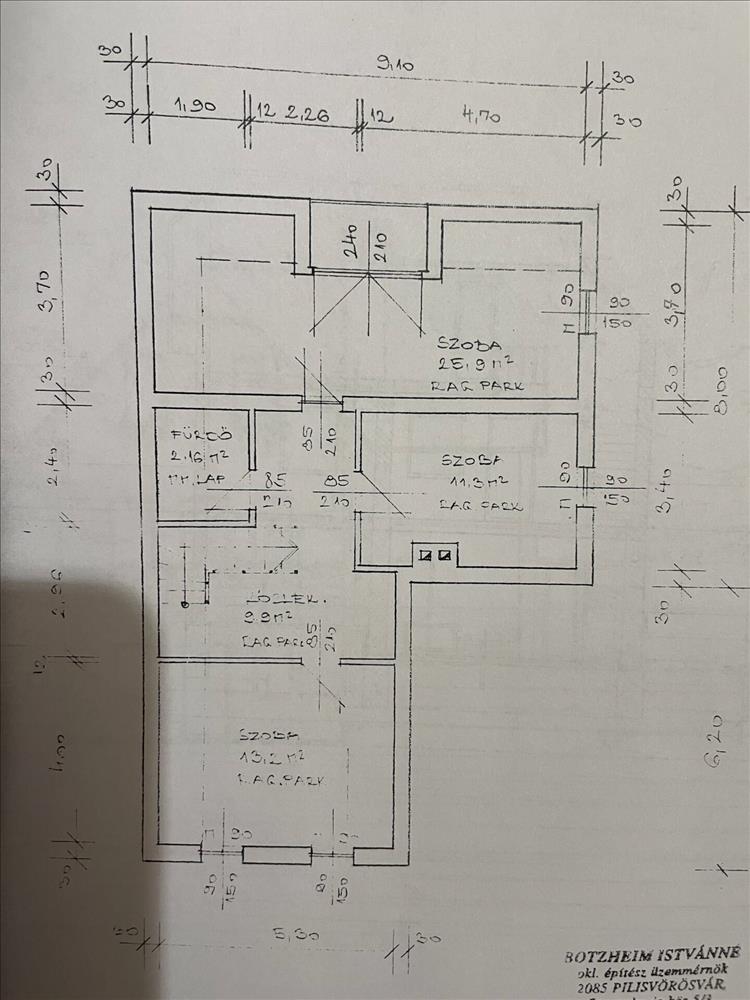 30 9,10 30
30 1,90 12 2,26 12 4,70 30
30
3,70
30
2,40
2,96
12
4,00
30
30
3,70
30
3,40
30
8,00
6,20
240
210
П 90
90
150
SZOBA
25,9 m²
RAG PARK
85
210
FÜRDŐ
2,16 m²
MM. LAP
85
210
85
210
SZOBA
11,3 m²
RAG PARK
П 90
90
150
9,9 m²
RAG PARK
85
210
SZOBA
13,2 m²
RAG. PARK
90
150
90
150
30 5,30 30
BOTZHEIM ISTVÁNNÉ
okl. építész üzemmérnök
2085 PILISVÖRÖSVÁR